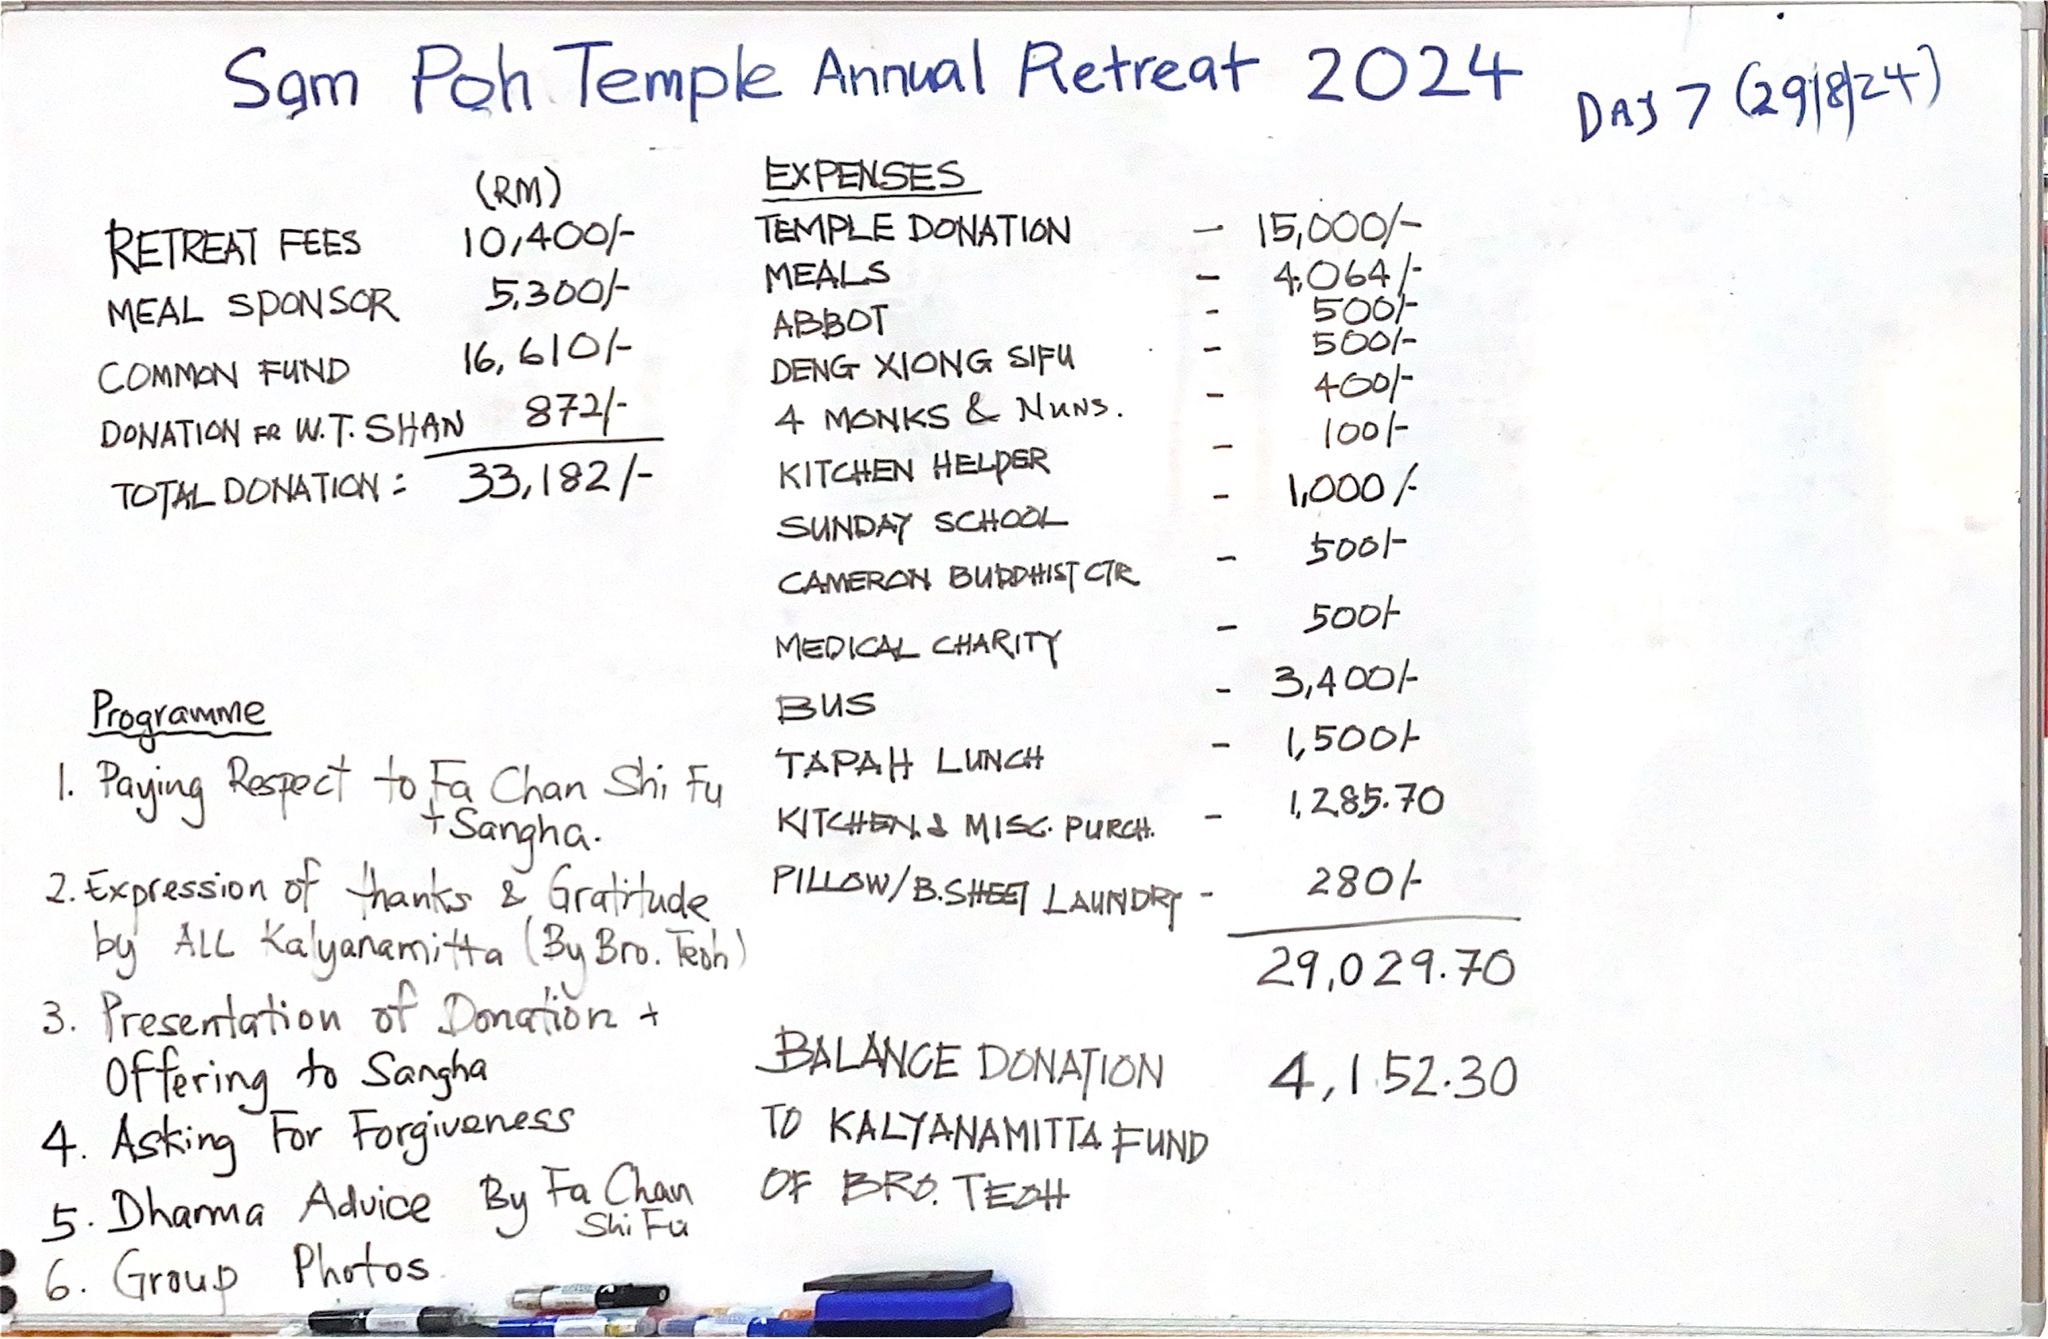 Sam Poh Temple Annual Retreat 2024
DAY 7 (29/8/24)
(RM)
RETREAT FEES 10,400/-
MEAL SPONSOR 5,300/-
COMMON FUND 16,610/-
DONATION FR W.T. SHAN 872/-
TOTAL DONATION : 33,182/-
Programme
1. Paying Respect to Fa Chan Shi Fu
+ Sangha.
2. Expression of thanks & Gratitude
by ALL Kalyanamitta (By Bro. Teoh)
3. Presentation of Donation +
Offering to Sangha
4. Asking For Forgiveness
5. Dharma Advice By Fa Chan
Shi Fu
6. Group Photos
EXPENSES
TEMPLE DONATION - 15,000/-
MEALS - 4,064/-
ABBOT - 500/-
DENG XIONG SIFU - 500/-
4 MONKS & NUNS. - 400/-
KITCHEN HELPER - 100/-
SUNDAY SCHOOL - 1,000/-
CAMERON BUDDHIST CTR - 500/-
MEDICAL CHARITY - 500/-
BUS - 3,400/-
TAPAH LUNCH - 1,500/-
KITCHEN & MISC. PURCH. - 1,285.70
PILLOW/B.SHEET LAUNDRY - 280/-
29,029.70
BALANCE DONATION 4,152.30
TO KALYANAMITTA FUND
OF BRO. TEOH